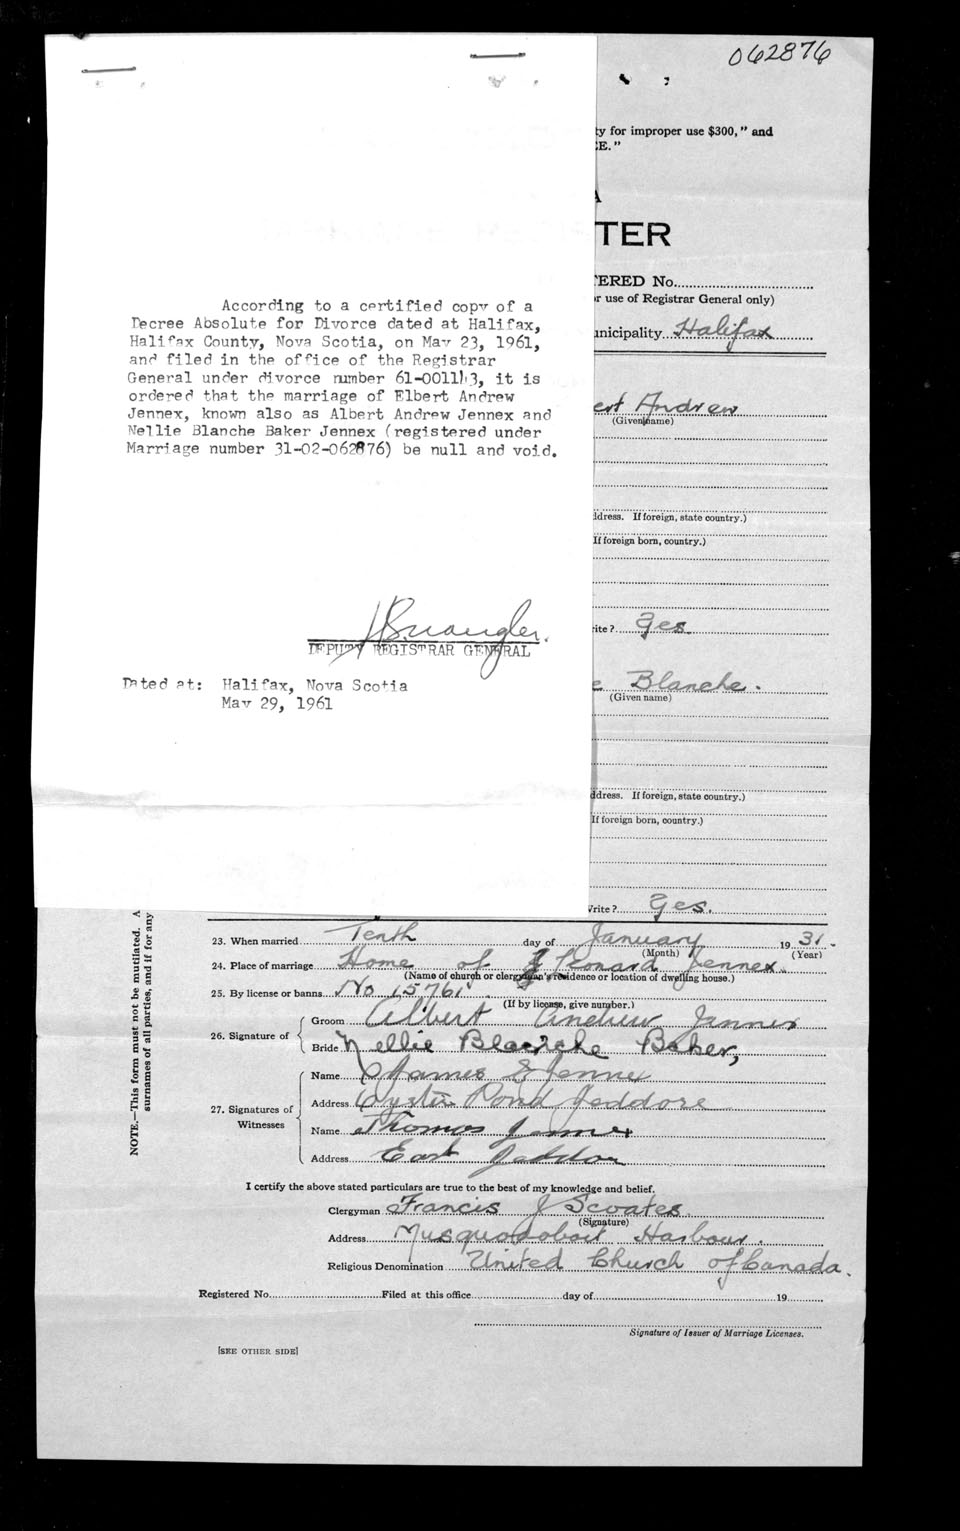 062876
ty for improper use $300," and
CE."
A
TER
According to a certified copy of a
Decree Absolute for Divorce dated at Halifax,
Halifax County, Nova Scotia, on May 23, 1961,
and filed in the office of the Registrar
General under divorce number 61-001143, it is
ordered that the marriage of Elbert Andrew
Jennex, known also as Albert Andrew Jennex and
Nellie Blanche Baker Jennex (registered under
Marriage number 31-02-062876) be null and void.
DEPUTY REGISTRAR GENERAL
Dated at: Halifax, Nova Scotia
May 29, 1961
TERED No.
or use of Registrar General only)
unicipality Halifax
ert Andrew
(Given name)
ddress. If foreign, state country.)
If foreign born, country.)
rite? Yes
e Blanche.
(Given name)
ddress. If foreign, state country.)
If foreign born, country.)
Write? Yes.
NOTE.—This form must not be mutilated. A
surnames of all parties, and if for any
23. When married Tenth day of January 1931.
(Month) (Year)
24. Place of marriage Home of Leonard Jennex.
(Name of church or clergyman's residence or location of dwelling house.)
25. By license or banns No 15761
(If by license, give number.)
26. Signature of
Groom Albert Andrew Jennex
Bride Nellie Blanche Baker,
27. Signatures of
Witnesses
Name James E Jennex
Address Oyster Pond Jeddore
Name Thomas Jennex
Address East Jeddore
I certify the above stated particulars are true to the best of my knowledge and belief.
Clergyman Francis J Scoates
(Signature)
Address Musquodoboit Harbour.
Religious Denomination United Church of Canada.
Registered No. Filed at this office day of 19
Signature of Issuer of Marriage Licenses.
[SEE OTHER SIDE]